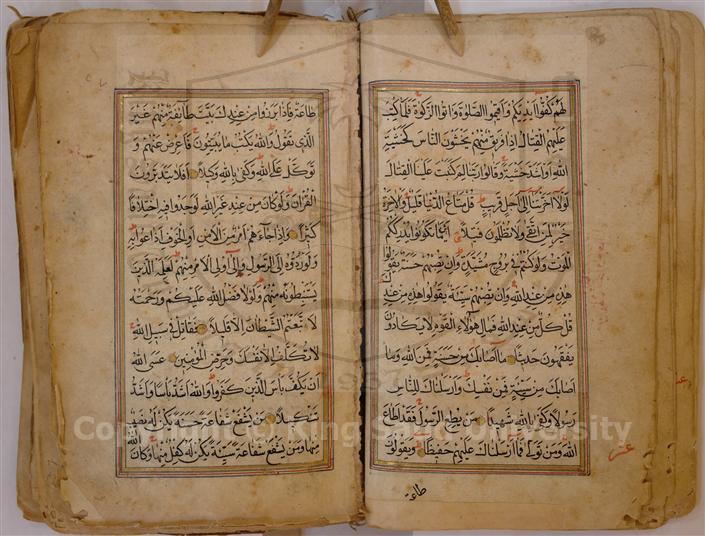 لهم كفوا ايديكم واقيموا الصلوة واتوا الزكوة فلما كتب
عليهم القتال اذا فريق منهم يخشون الناس كخشية
الله او اشد خشية وقالوا ربنا لم كتبت علينا القتال
لولا اخرتنا الى اجل قريب قل متاع الدنيا قليل والاخرة
خير لمن اتقى ولا تظلمون فتيلا اينما تكونوا يدرككم
الموت ولو كنتم في بروج مشيدة وان تصبهم حسنة يقولوا
هذه من عند الله وان تصبهم سيئة يقولوا هذه من عندك
قل كل من عند الله فمال هؤلاء القوم لا يكادون
يفقهون حديثا ما اصابك من حسنة فمن الله وما
اصابك من سيئة فمن نفسك وارسلناك للناس
رسولا وكفى بالله شهيدا من يطع الرسول فقد اطاع
الله ومن تولى فما ارسلناك عليهم حفيظا ويقولون
طاعة
طاعة فاذا برزوا من عندك بيت طائفة منهم غير
الذي تقول والله يكتب ما يبيتون فاعرض عنهم و
توكل على الله وكفى بالله وكيلا افلا يتدبرون
القران ولو كان من عند غير الله لوجدوا فيه اختلافا
كثيرا واذا جاءهم امر من الامن او الخوف اذاعوا به
ولو ردوه الى الرسول والى اولى الامر منهم لعلمه الذين
يستنبطونه منهم ولولا فضل الله عليكم ورحمته
لاتبعتم الشيطان الا قليلا فقاتل في سبيل الله
لا تكلف الا نفسك وحرض المؤمنين عسى الله
ان يكف باس الذين كفروا والله اشد باسا واشد
تنكيلا من يشفع شفاعة حسنة يكن له نصيب
منها ومن يشفع شفاعة سيئة يكن له كفل منها وكان الله
Copyright © King Saud University